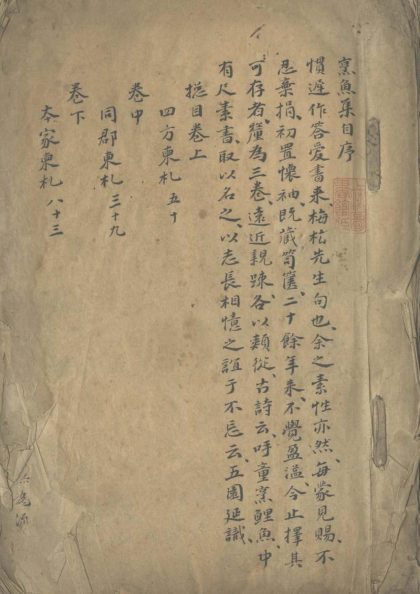 烹魚集目序
慣遲作答愛書来、梅菘先生句也、余之素性亦然、每蒙見賜、不
忍棄捐、初置懷袖、既藏笥篋、二十餘年来、不覺盈溢、今止擇其
可存者、釐為三卷、遠近親踈、各以類從、古詩云、呼童烹鯉魚、中
有尺素書、取以名之、以志長相憶之誼于不忘云、五園延識、
總目卷上
四方柬札 五十
卷中
同郡柬札 三十九
卷下
本家柬札 八十三